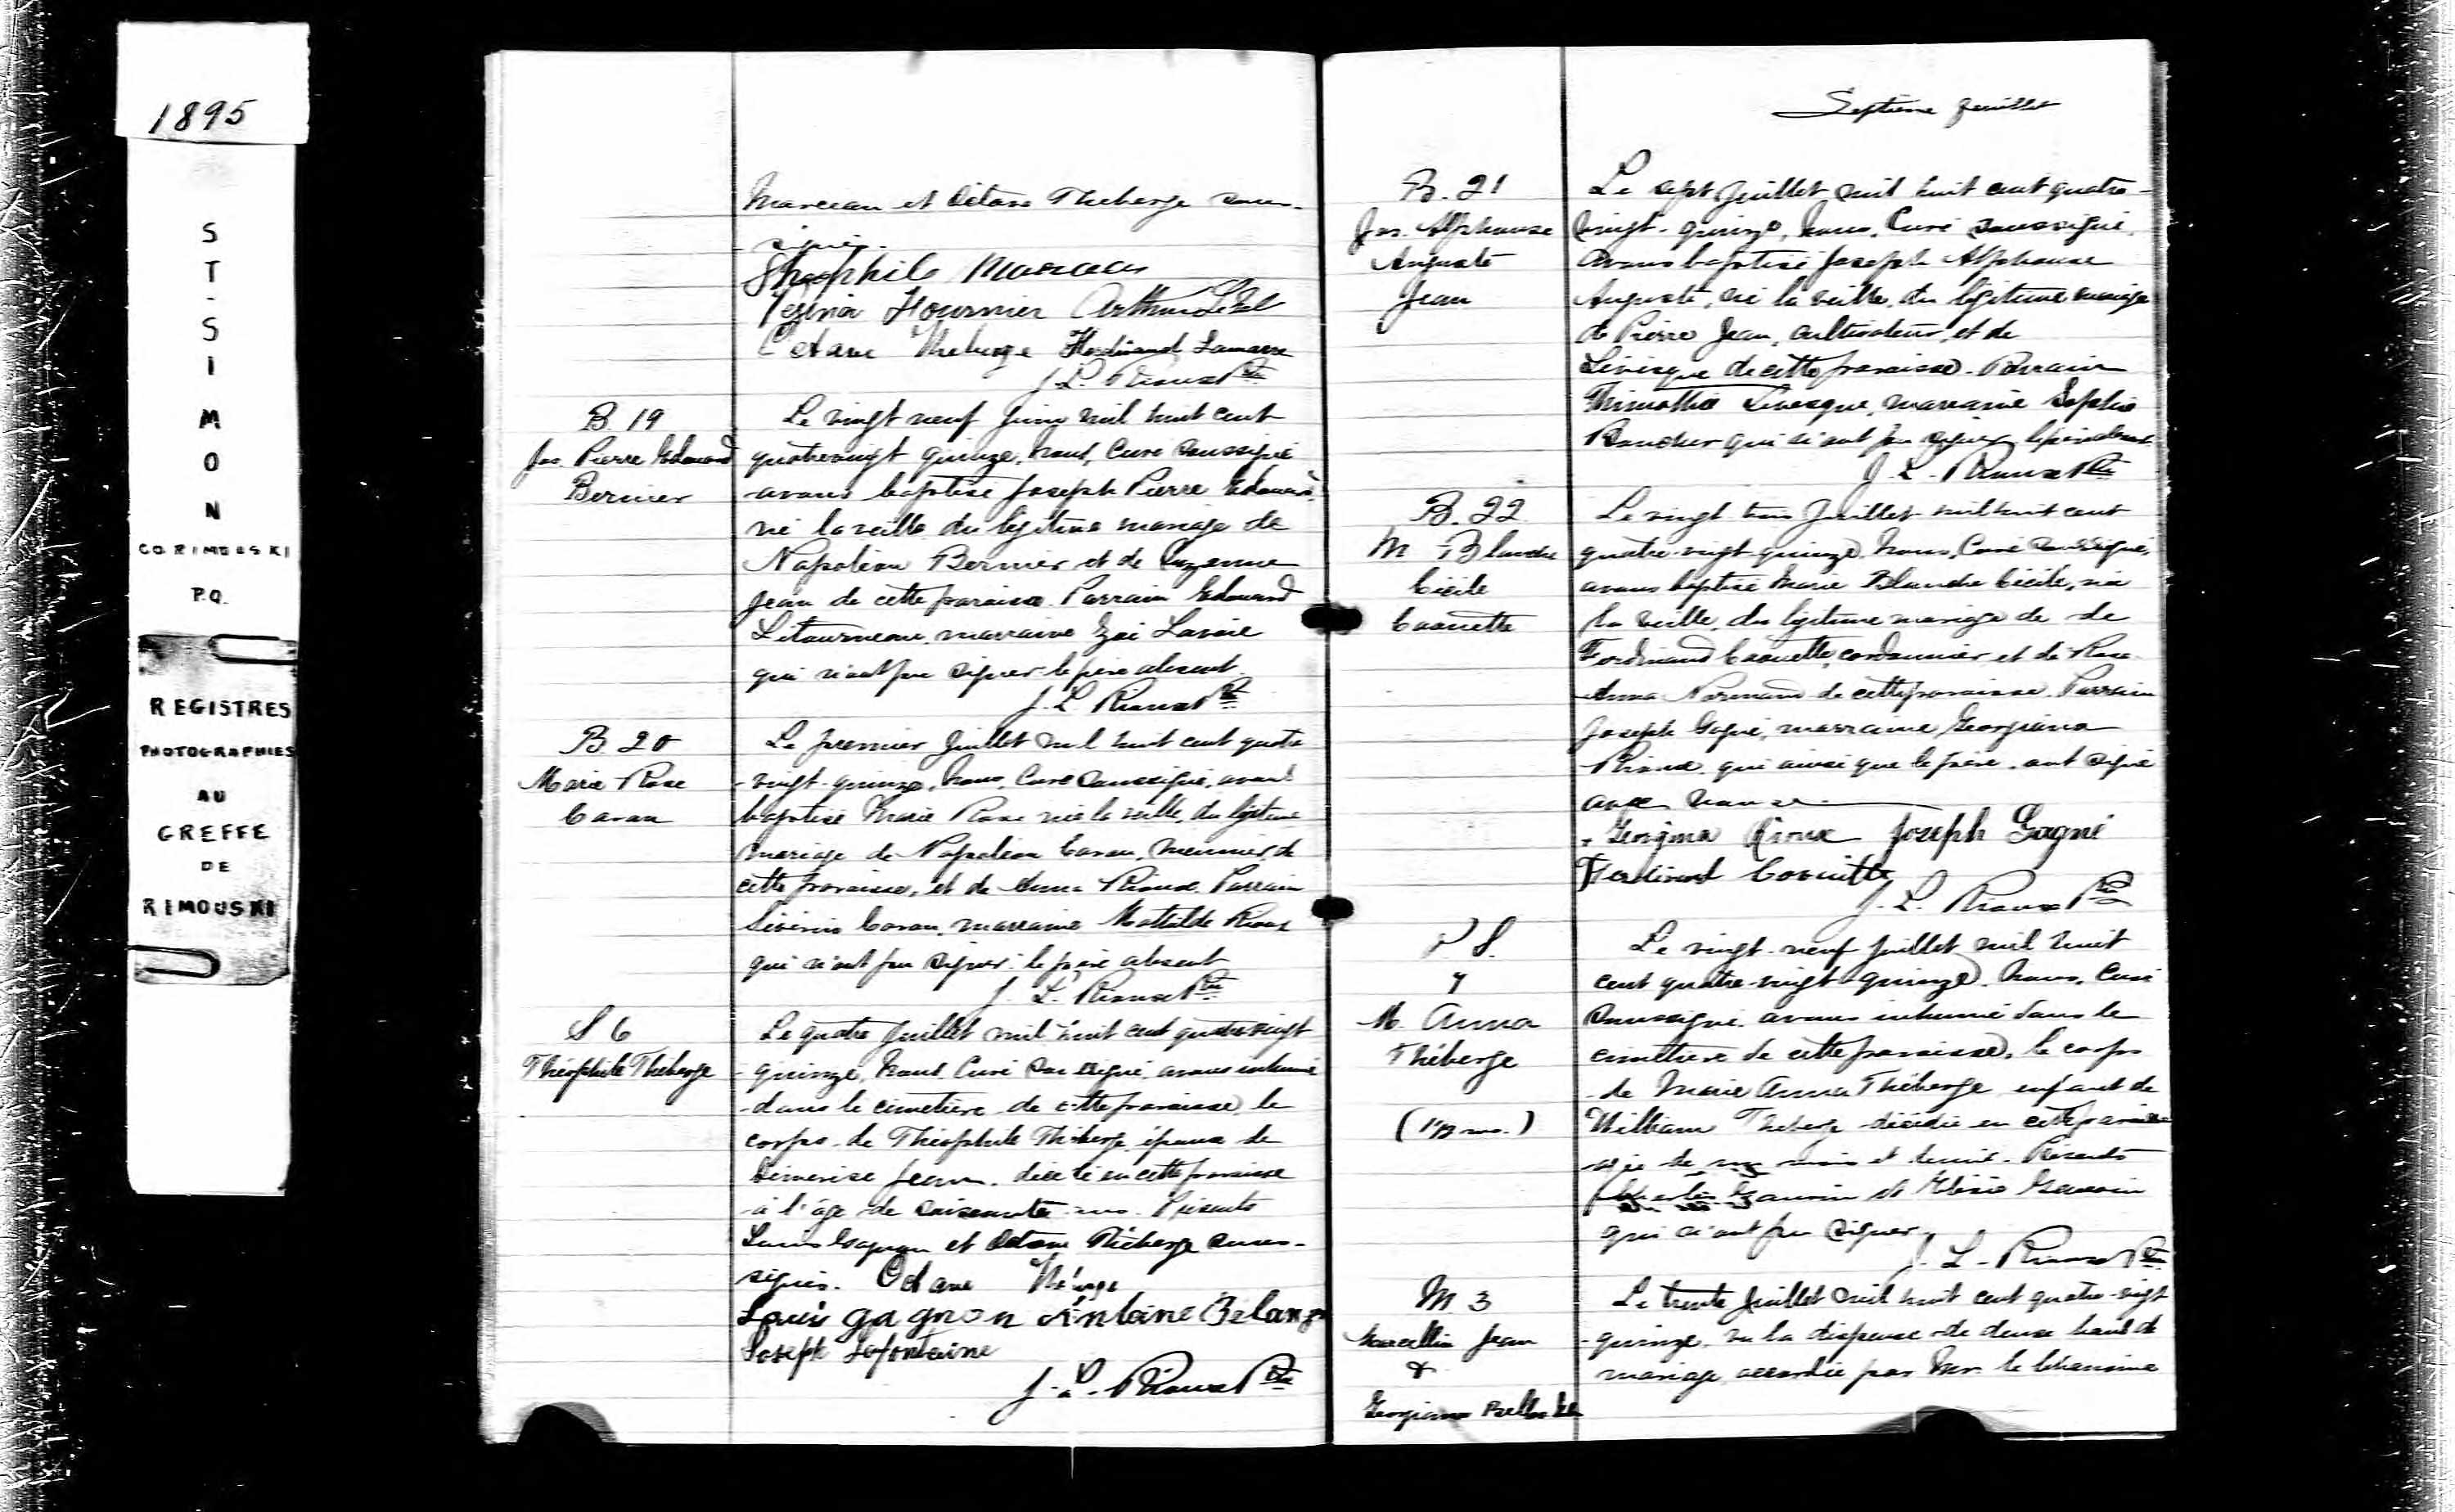 1895
ST-SIMON
CO. RIMOUSKI
P.Q.
REGISTRES
PHOTOGRAPHIES
AU
GREFFE
DE
RIMOUSKI
Marceau et Octave Theberge sous-
signés.
Théophile Marceau
Fournier Arthur
Octave Theberge Ferdinand Lamarre
J. L. Rioux Ptre
B. 19
Jos. Pierre Edouard
Bernier
Le vingt neuf juin mil huit cent
quatrevingt quinze, nous, Curé soussigné
avons baptisé Joseph Pierre Edouard,
né la veille du légitime mariage de
Napoléon Bernier et de Suzanne
Jean de cette paroisse. Parrain Edouard
Létourneau, marraine Zoé Lavoie
qui n'ont pu signer le père absent.
J. L. Rioux Ptre
B. 20
Marie Rose
Caron
Le premier Juillet mil huit cent quatre
-vingt-quinze, nous, Curé soussigné, avons
baptisé Marie Rose née la veille, du légitime
mariage de Napoléon Caron, meunier de
cette paroisse, et de Anna Rioux. Parrain
Séverin Caron, marraine Mathilde Rioux
qui n'ont pu signer; le père absent
J. L. Rioux Ptre
S 6
Théophile Théberge
Le quatre Juillet mil huit cent quatrevingt
-quinze, nous, Curé soussigné, avons inhumé
dans le cimetière de cette paroisse, le
corps de Théophile Théberge, époux de
Démerise Jean, décédé en cette paroisse
à l'âge de soixante ans. Présents
Louis Gagnon et Octave Théberge sous-
signés. Octave Théberge
Louis gagnon Antoine Belanger
Joseph Lafontaine
J. L. Rioux Ptre
Septième feuillet
B. 21
Jos. Alphonse
Auguste
Jean
Le sept Juillet mil huit cent quatre-
vingt-quinze, nous, Curé soussigné,
avons baptisé Joseph Alphonse
Auguste, né la veille, du légitime mariage
de Pierre Jean, cultivateur, et de
Lévesque de cette paroisse. Parrain
Thimothé Levesque, marraine Sophie
Boucher qui n'ont pu signer, le père absent
J. L. Rioux Ptre
B. 22
M Blanche
Cécile
Caouette
Le vingt trois Juillet mil huit cent
quatre-vingt-quinze, nous, Curé soussigné,
avons baptisé Marie Blanche Cécile, née
la veille, du légitime mariage de de
Ferdinand Caouette, cordonnier et de Rose
Anna Normand de cette paroisse. Parrain
Joseph Gagné, marraine Georgiana
Rioux, qui ainsi que le père, ont signé
avec nous
Georgina Rioux Joseph Gagné
Ferdinand Caouette
J. L. Rioux Ptre
S.
7
M. Anna
Théberge
Le vingt-neuf Juillet mil huit
cent quatre-vingt-quinze, nous, Curé
soussigné, avons inhumé dans le
cimetière de cette paroisse, le corps
de Marie Anna Théberge, enfant de
William Theberge décédée en cette paroisse
agée de un mois et demi. Présents
et Elisée
qui n'ont pu signer.
J. L. Rioux Ptre
M 3
Marcellin Jean
&
Georgiana
Le trente Juillet mil huit cent quatre-vingt
-quinze, vu la dispense de deux bans de
mariage accordée par Mr. le Chanoine